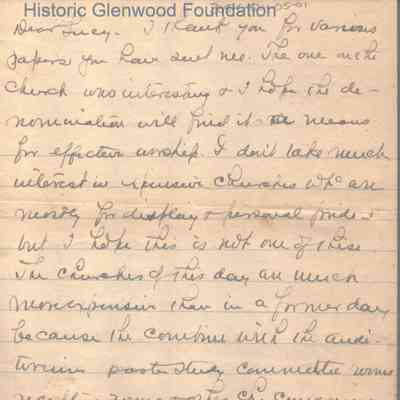 Historic Glenwood Foundation
Dear Lucy. I thank you for various
papers you have sent me. The one on the
church was interesting & I hope the de-
nomination will find it a means
for effective worship. I don't take much
interest in expensive churches who are
mostly for display & personal pride
but I hope this is not one of these.
The churches of this day are much
more expensive than in a former day
because the combine with the audi-
torium pastor study committee rooms